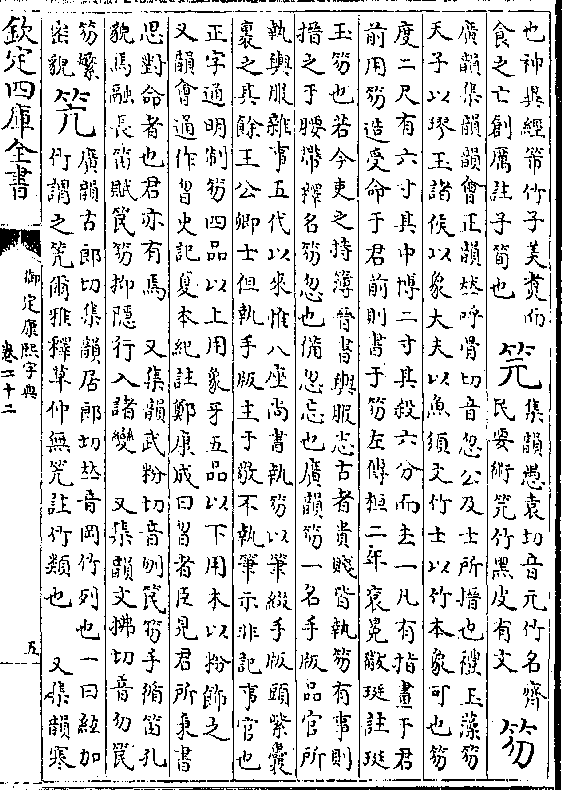 也神異經箁竹子美煑而
食之亡創厲註子筍也
笎
集韻愚袁切音元竹名齊
民要術笎竹黑皮有文
笏
廣韻集韻韻會正韻𠀤呼骨切音忽公及士所搢也禮玉藻笏
天子以璆玉諸侯以象大夫以魚須文竹士以竹本象可也笏
度二尺有六寸其中博二寸其殺六分而去一凡有指畫于君
前用笏造受命于君前則書于笏左傳桓二年袞冕黻珽註珽
玉笏也若今吏之持簿晉書輿服志古者貴賤皆執笏有事則
搢之于腰帶釋名笏忽也備忽忘也廣韻笏一名手版品官所
執輿服雜事五代以來惟八座尚書執笏以筆綴手版頭紫囊
裹之其餘王公卿士但執手版主于敬不執筆示非記事官也
正字通明制笏四品以上用象牙五品以下用木以粉飾之
又韻會通作曶史記夏本紀註鄭康成曰曶者臣見君所秉書
思對命者也君亦有焉 又集韻武粉切音刎筤笏手循笛孔
貌馬融長笛賦筤笏抑隱行入諸變 又集韻文拂切音勿筤
笏繁
密貌
笐
廣韻古郎切集韻居郎切𠀤音岡竹列也一曰紘加
竹謂之笐爾雅釋草仲無笐註竹類也 又集韻寒
欽定四庫全書
御定康熙字典
卷二十二
五